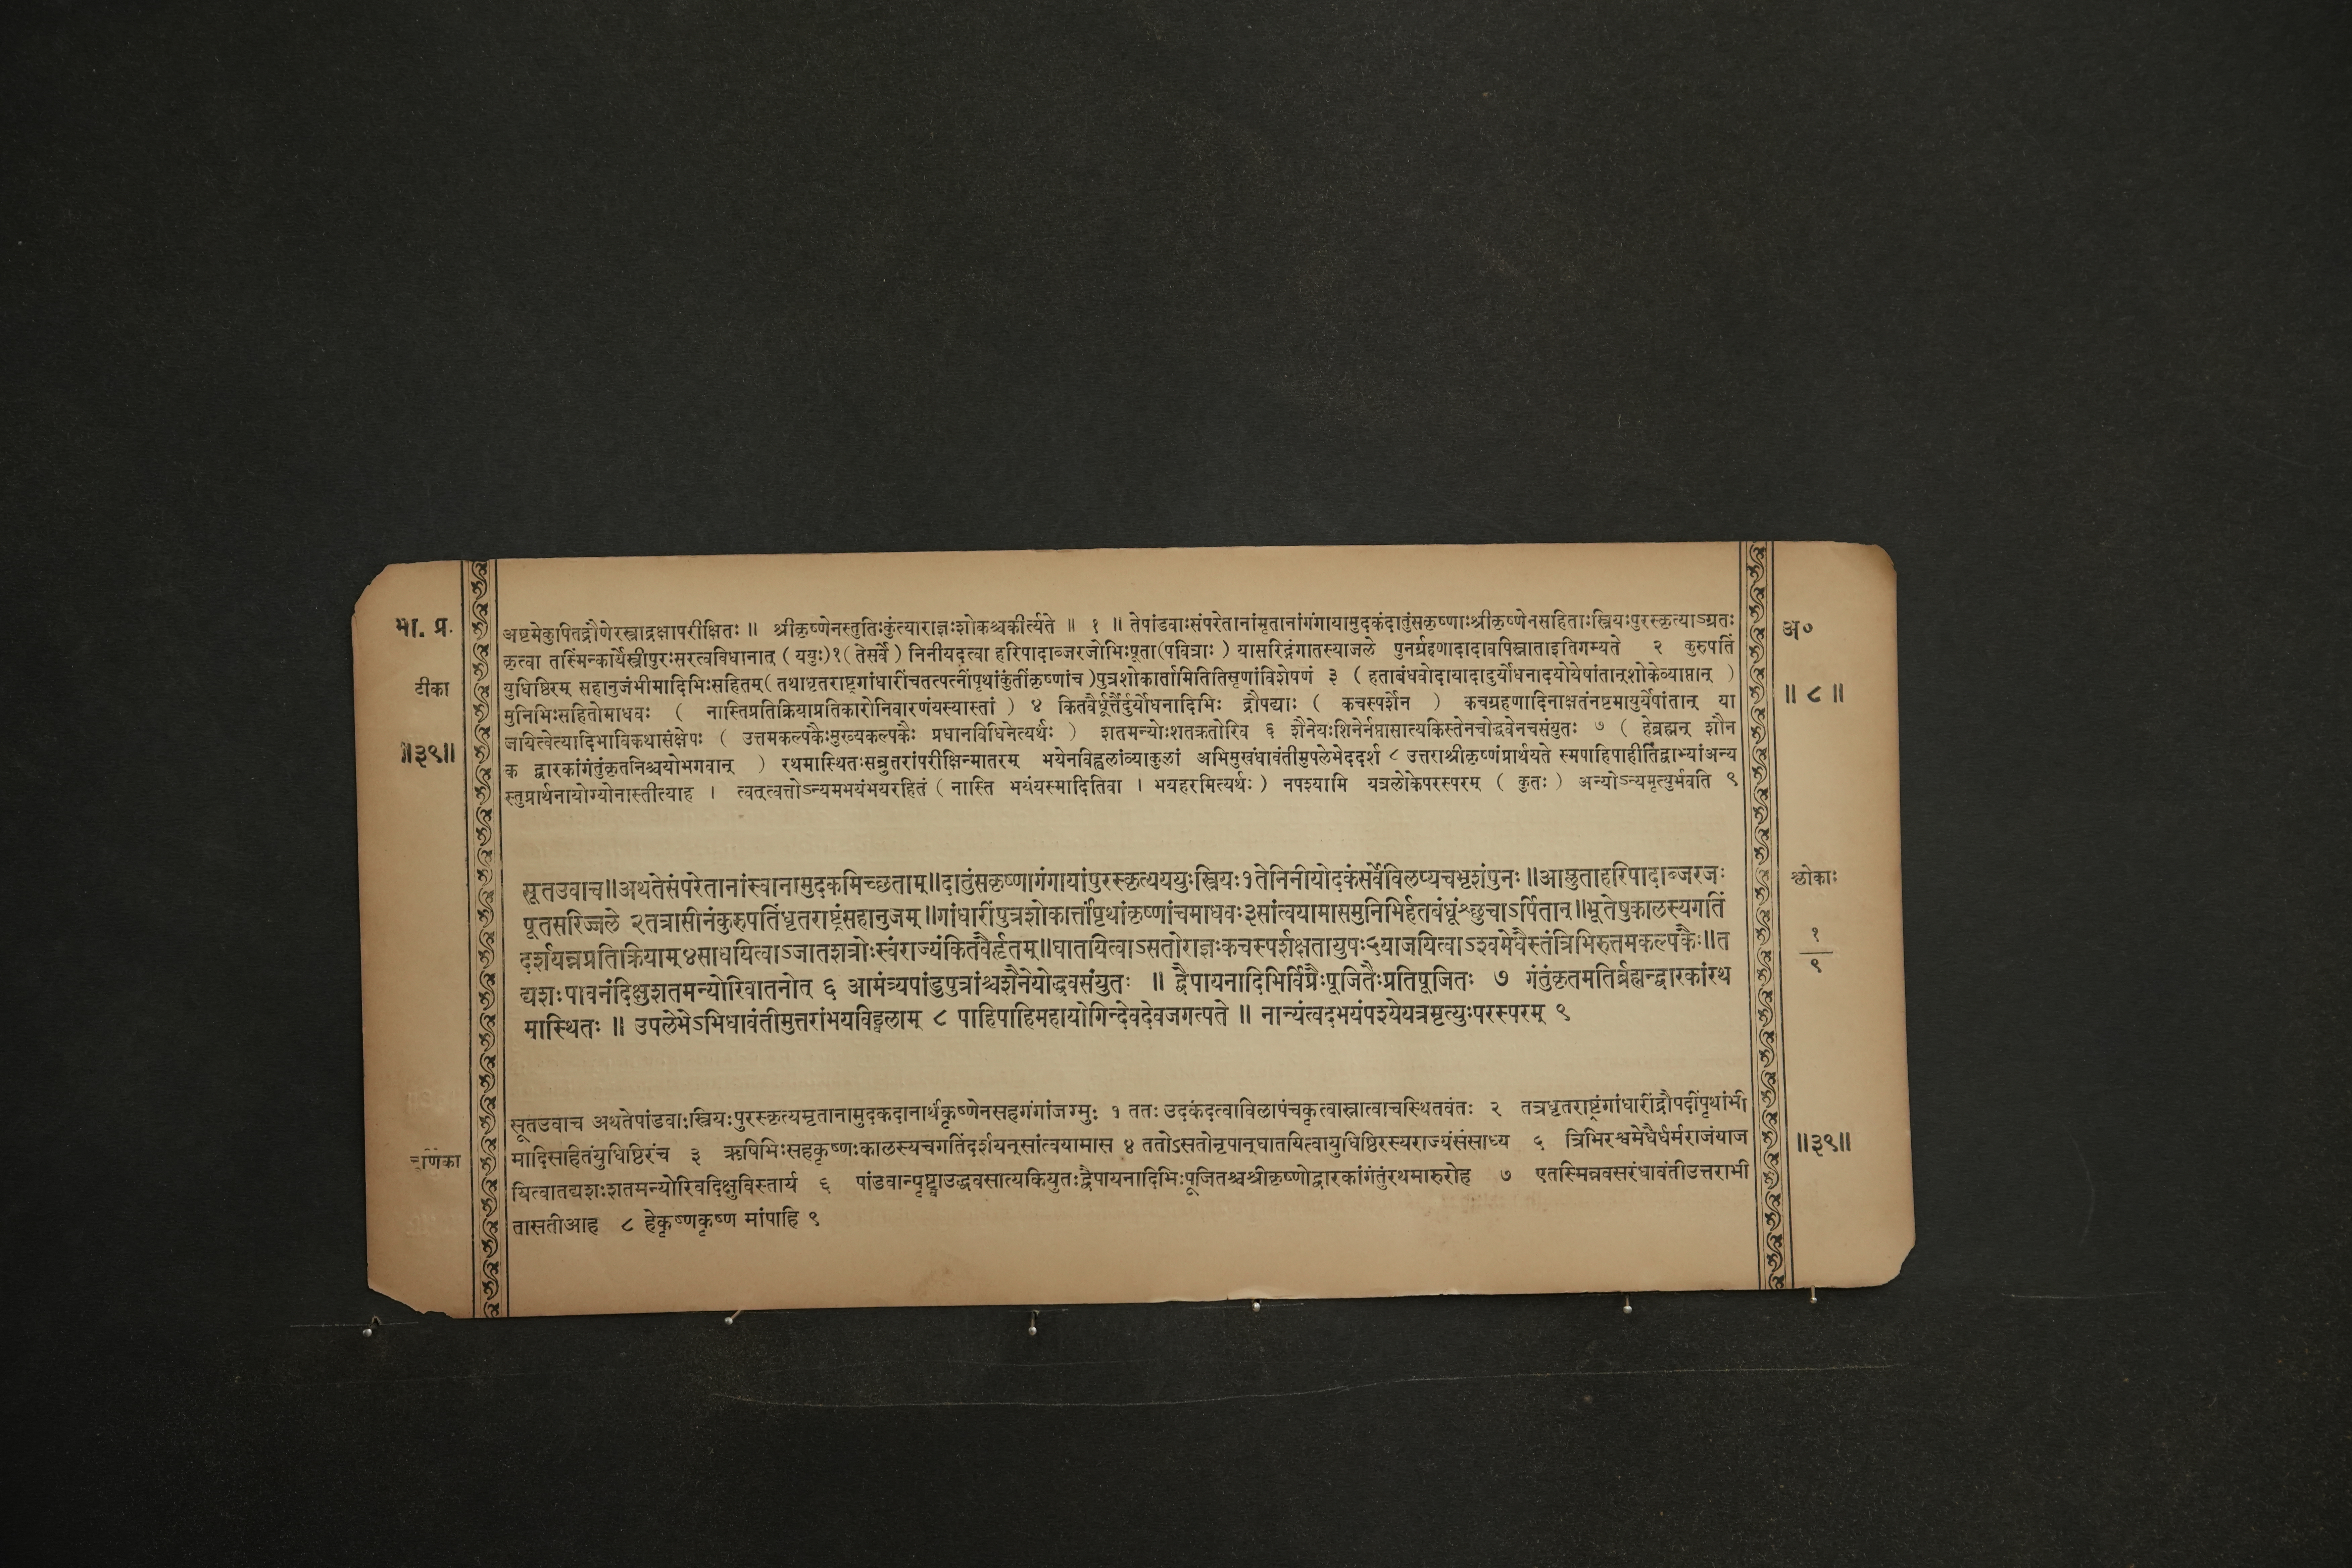 भा. प्र.
टीका
॥३९॥
अष्टमेकुपितद्रौणेरस्त्राद्रक्षापरीक्षितः ॥ श्रीकृष्णेनस्तुतिःकुंत्याराज्ञःशोकश्चकीर्त्यते ॥ १ ॥ तेपांडवाःसंपरेतानांमृतानांगंगायामुदकंदातुंसकृष्णाःश्रीकृष्णेनसहिताःस्त्रियःपुरस्कृत्याऽग्रतः
कृत्वा तस्मिंन्कार्येस्त्रीपुरःसरत्वविधानात् (ययुः)१(तेसर्वे) निनीयदत्वा हरिपादाब्जरजोभिःपूता(पवित्राः) यासरिद्गंगातस्याजले पुनर्ग्रहणादादावपिस्नाताइतिगम्यते २ कुरुपतिं
युधिष्ठिरम् सहानुजंभीमादिभिःसहितम्(तथाधृतराष्ट्रगांधारींचतत्पत्नींपृथांकुंतींकृष्णांच)पुत्रशोकार्तामितितिसृणांविशेषणं ३ (हताबंधवोदायादादुर्योधनादयोयेषांतान्शोकेव्याप्तान्)
मुनिभिःसहितोमाधवः ( नास्तिप्रतिक्रियाप्रतिकारोनिवारणंयस्यास्तां ) ४ कितवैर्धूर्त्तैर्दुर्योधनादिभिः द्रौपद्याः ( कचस्पर्शेन ) कचग्रहणादिनाक्षतंनष्टमायुर्येषांतान् या
जयित्वेत्यादिभाविकथासंक्षेपः ( उत्तमकल्पकैःमुख्यकल्पकैः प्रधानविधिनेत्यर्थः ) शतमन्योःशतक्रतोरिव ६ शैनेयःशिनेर्नप्तासात्यकिस्तेनचोद्धवेनचसंयुतः ७ ( हेब्रह्मन् शौन
क द्वारकांगंतुंकृतनिश्चयोभगवान् ) रथमास्थितःसन्नुतरांपरीक्षिन्मातरम् भयेनविह्वलांव्याकुलां अभिमुखंधावंतीमुपलेभेददर्श ८ उत्तराश्रीकृष्णंप्रार्थयते स्मपाहिपाहीतिद्वाभ्यांअन्य
स्तुप्रार्थनायोग्योनास्तीत्याह । त्वत्त्वत्तोऽन्यमभयंभयरहितं (नास्ति भयंयस्मादितिवा । भयहरमित्यर्थः) नपश्यामि यत्रलोकेपरस्परम् (कुतः) अन्योऽन्यमृत्युर्भवति ९
अ०
॥८॥
सूतउवाच॥अथतेसंपरेतानांस्वानामुदकमिच्छताम्॥दातुंसकृष्णागंगायांपुरस्कृत्यययुःस्त्रियः१तेनिनीयोदकंसर्वेविलप्यचभृशंपुनः॥आप्लुताहरिपादाब्जरजः
पूतसरिज्जले २तत्रासीनंकुरुपतिंधृतराष्ट्रंसहानुजम्॥गांधारींपुत्रशोकार्त्तांपृथांकृष्णांचमाधवः३सांत्वयामासमुनिभिर्हतबंधूंश्छुचाऽर्पितान्॥भूतेषुकालस्यगतिं
दर्शयन्नप्रतिक्रियाम्४साधयित्वाऽजातशत्रोःस्वंराज्यंकितवैर्हृतम्॥घातयित्वाऽसतोराज्ञःकचस्पर्शक्षतायुषः५याजयित्वाऽश्वमेधैस्तंत्रिभिरुत्तमकल्पकैः॥त
द्यशःपावनंदिक्षुशतमन्योरिवातनोत् ६ आमंत्र्यपांडुपुत्रांश्चशैनेयोद्धवसंयुतः ॥ द्वैपायनादिभिर्विप्रैःपूजितैःप्रतिपूजितः ७ गंतुंकृतमतिर्ब्रह्मन्द्वारकांरथ
मास्थितः ॥ उपलेभेऽभिधावंतीमुत्तरांभयविह्वलाम् ८ पाहिपाहिमहायोगिन्देवदेवजगत्पते ॥ नान्यंत्वदभयंपश्येयत्रमृत्युःपरस्परम् ९
श्लोकाः
१
९
सूतउवाच अथतेपांडवाःस्त्रियःपुरस्कृत्यमृतानामुदकदानार्थंकृष्णेनसहगंगांजग्मुः १ ततःउदकंदत्वाविलापंचकृत्वास्नात्वाचस्थितवंतः २ तत्रधृतराष्ट्रंगांधारींद्रौपदींपृथांभी
मादिसाहितंयुधिष्ठिरंच ३ ऋषिभिःसहकृष्णःकालस्यचगतिंदर्शयन्सांत्वयामास ४ ततोऽसतोनृपान्घातयित्वायुधिष्ठिरस्यराज्यंसंसाध्य ५ त्रिभिरश्वमेधैर्धर्मराजंयाज
यित्वातद्यशःशतमन्योरिवदिक्षुविस्तार्य ६ पांडवान्पृष्ट्वाउद्धवसात्यकियुतःद्वैपायनादिभिःपूजितश्चश्रीकृष्णोद्वारकांगंतुंरथमारुरोह ७ एतस्मिन्नवसरेधावंतीउत्तराभी
तासतीआह ८ हेकृष्णकृष्ण मांपाहि ९
॥३९॥